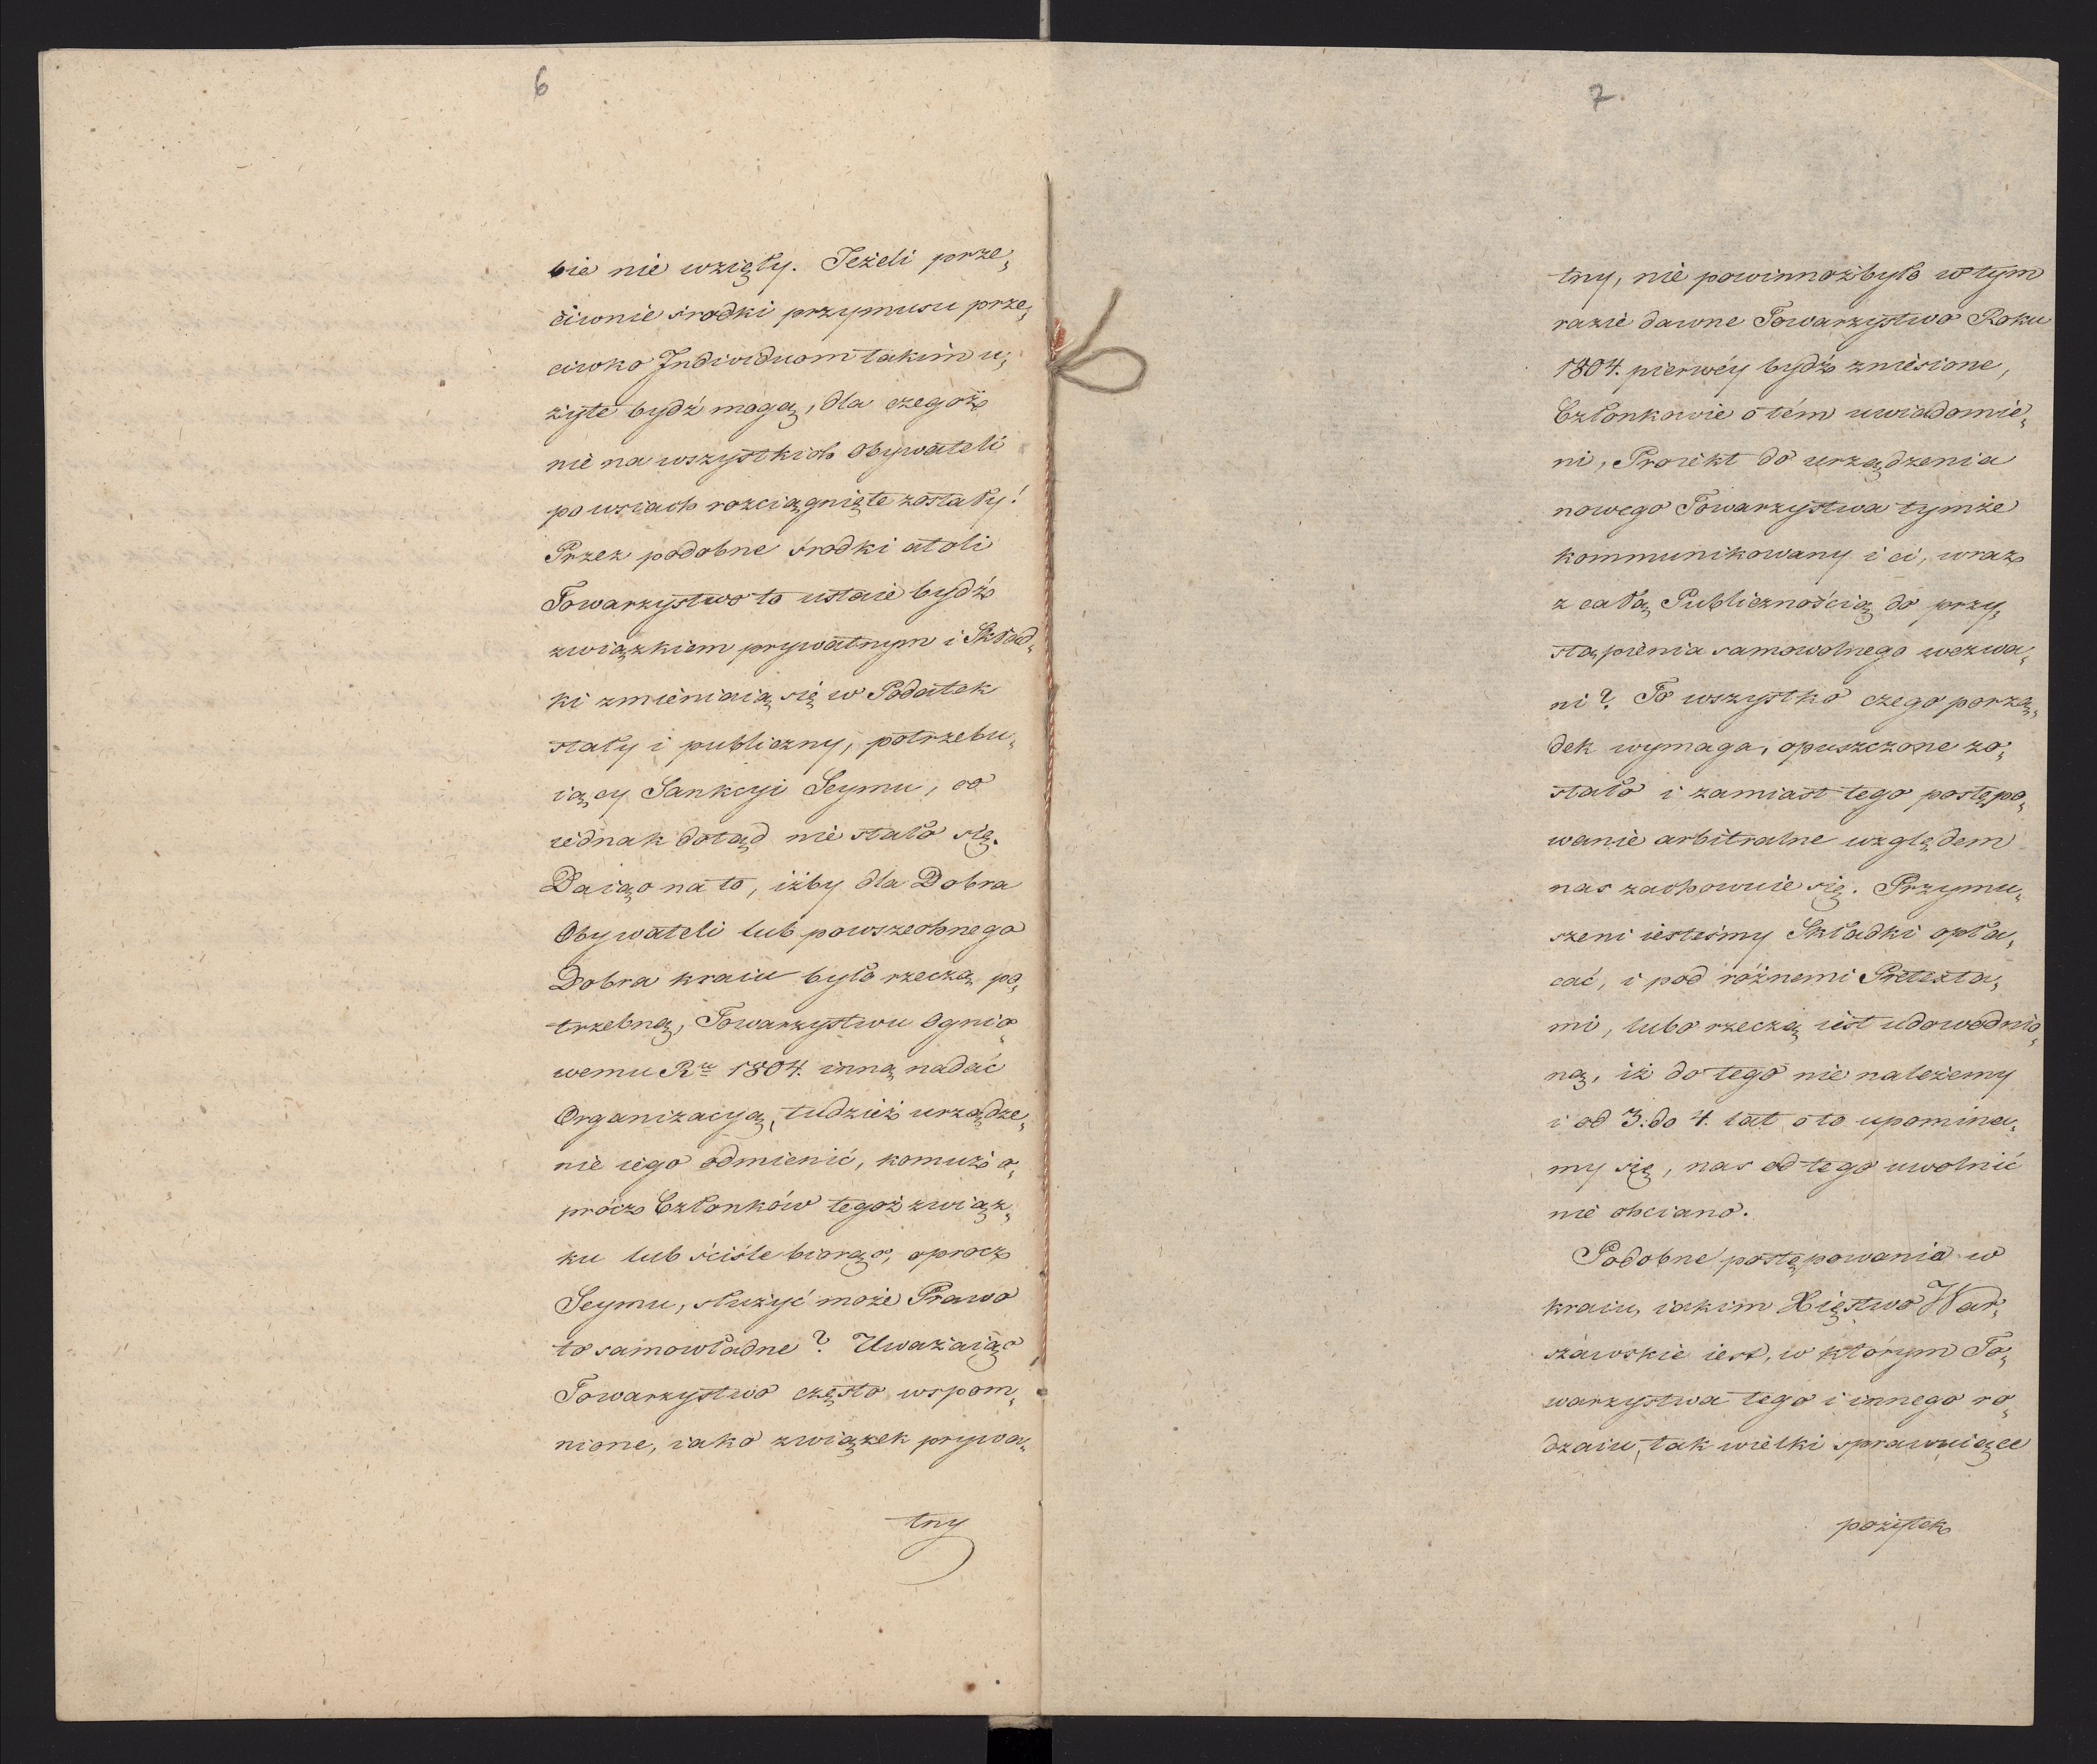 6
bie nie wzięły. Jeżeli prze„
ciwnie srodki przymusu prze„
ciwko Individuom takim u„
żyte bydź mogą, dla czegoż
nie na wszystkich Obywateli
po wsiach rozciągnięte zostały!
Przez podobne srodki atoli
Towarzystwo to ustaie bydź
związkiem prywatnym i Skład„
ki zmieniaią się w Podatek
stały i publiczny, potrzebu„
iący Sankcyi Seymu, co
iednak dotąd nie stało się.
Daiąc na to, iżby dla Dobra
Obywateli lub powszechnego
Dobra kraiu było rzeczą po„
trzebną, Towarzystwu Ognio„
wemu Ru 1804. inną nadać
Organizacyą, tudzież urządze„
nie iego odmienić, komuż o„
prócz Członków tegoż związ„
ku lub ściśle biorąc, oprocz
Seymu, służyć może Prawo
to samowładne? Uważaiąc
Towarzystwo często wspom„
nione, iako związek prywa„
tny
7.
tny, nie powinnoż było w tym
razie dawne Towarzystwo Roku
1804. pierwéy bydź zniesione,
Członkowie o tém uwiadomie„
ni, Proiekt do urządzenia
nowego Towarzystwa tymże
kommunikowany i ci, wraz
z całą Publicznością do przy„
stąpienia samowolnego wezwa„
ni? To wszystko czego porzą„
dek wymaga, opuszczone zo„
stało i zamiast tego postępo„
wanie arbitralne względem
nas zachowuie się. Przymu„
szeni iesteśmy Składki opła„
cać, i pod różnemi Pretexta„
mi, lubo rzeczą iest udowodnio„
ną, iż do tego nie należemy
i od 3. do 4. lat o to upomina„
my się, nas od tego uwolnić
nie chciano.
Podobne postępowania w
kraiu, iakim Xięstwo War„
szawskie iest, w którym To„
warzystwa tego i innego ro„
dzaiu, tak wielki sprawuiące
pożytek